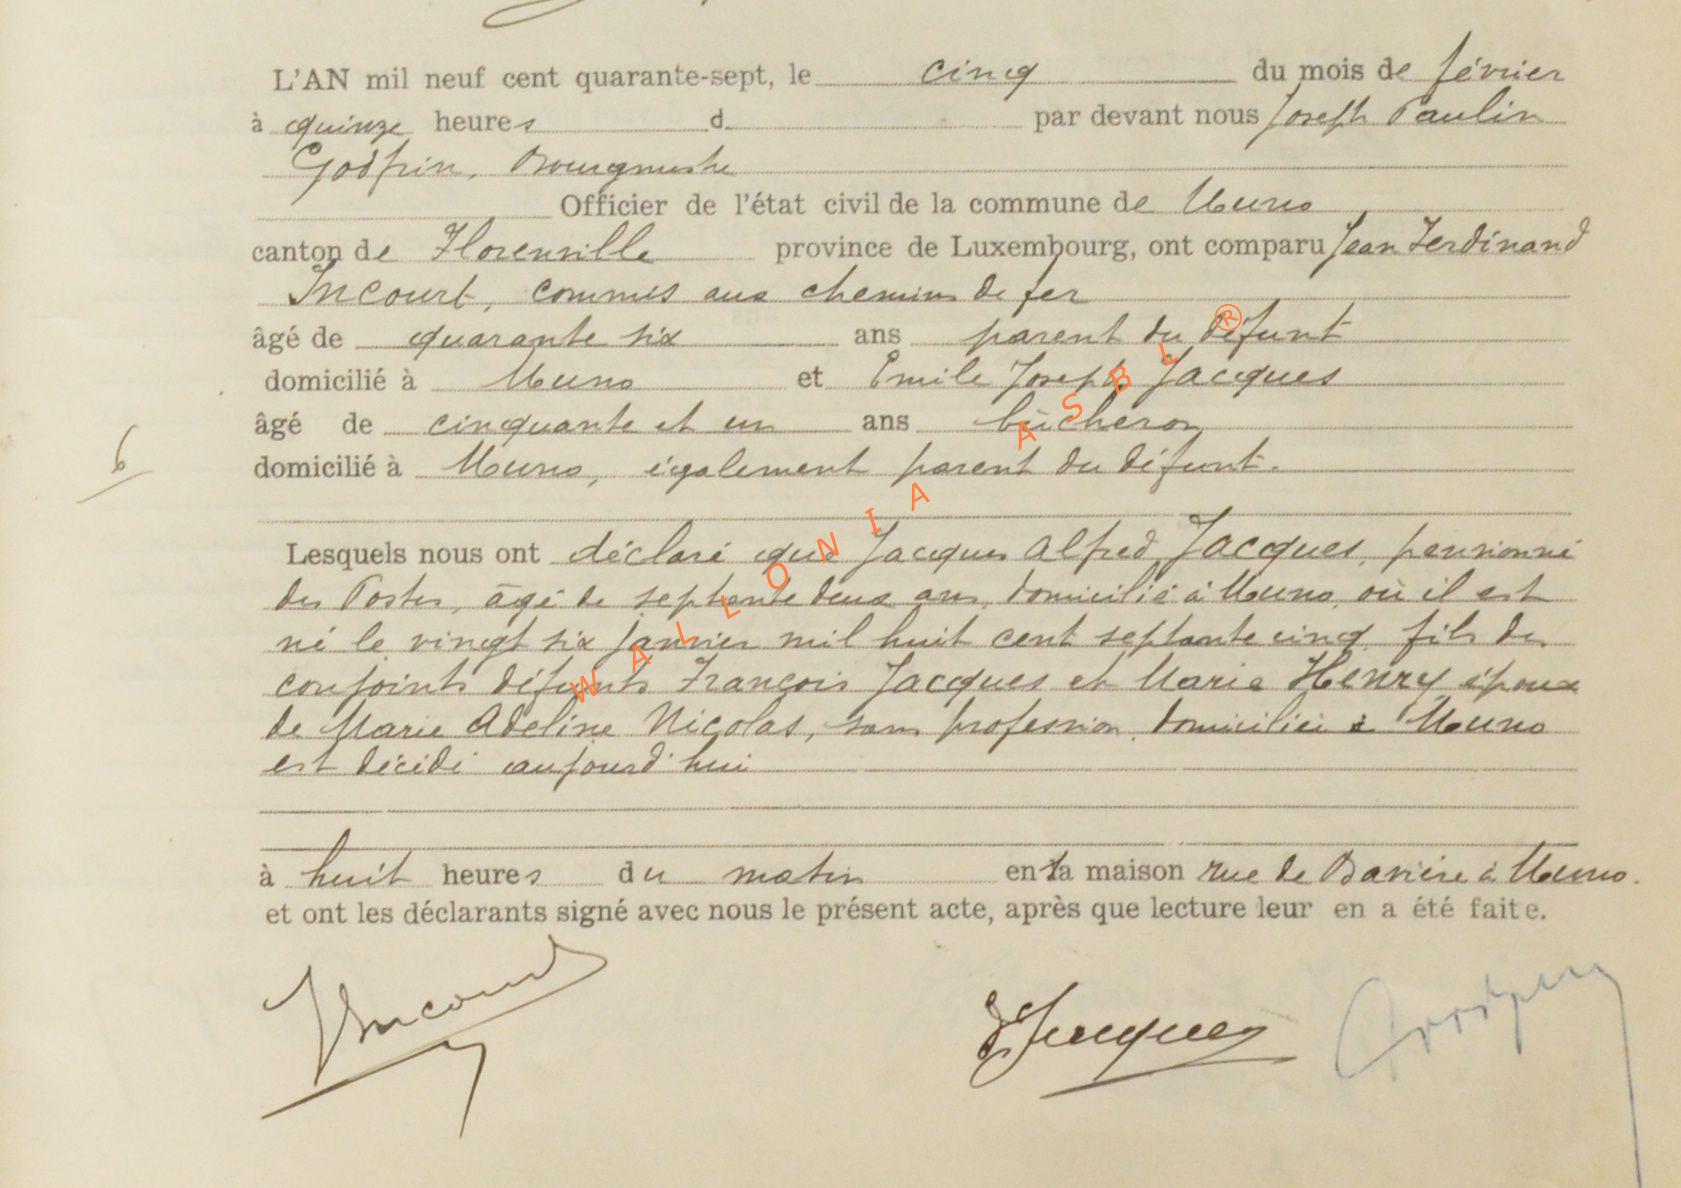 L'AN mil neuf cent quarante-sept, le cinq du mois de février
à quinze heures d par devant nous Joseph Paulin
Godfrin, Bourgmestre
Officier de l'état civil de la commune de Muno
canton de Florenville province de Luxembourg, ont comparu Jean Ferdinand
Incourt, commis aux chemins de fer
âgé de quarante six ans parent du défunt
domicilié à Muno et Emile Joseph Jacques
âgé de cinquante et un ans bûcheron
domicilié à Muno, également parent du défunt.
6
Lesquels nous ont déclaré que Jacques Alfred Jacques, pensionné
des Postes, âgé de septante deux ans, domicilié à Muno, où il est
né le vingt six janvier mil huit cent septante cinq, fils des
conjoints défunts François Jacques et Marie Henry, époux
de Marie Adeline Nicolas, sans profession, domiciliée à Muno
est décédé aujourd'hui
à huit heures du matin en la maison rue de Bavière à Muno.
et ont les déclarants signé avec nous le présent acte, après que lecture leur en a été faite.
JIncourt
EJacques
WALLONIA ASBL ®